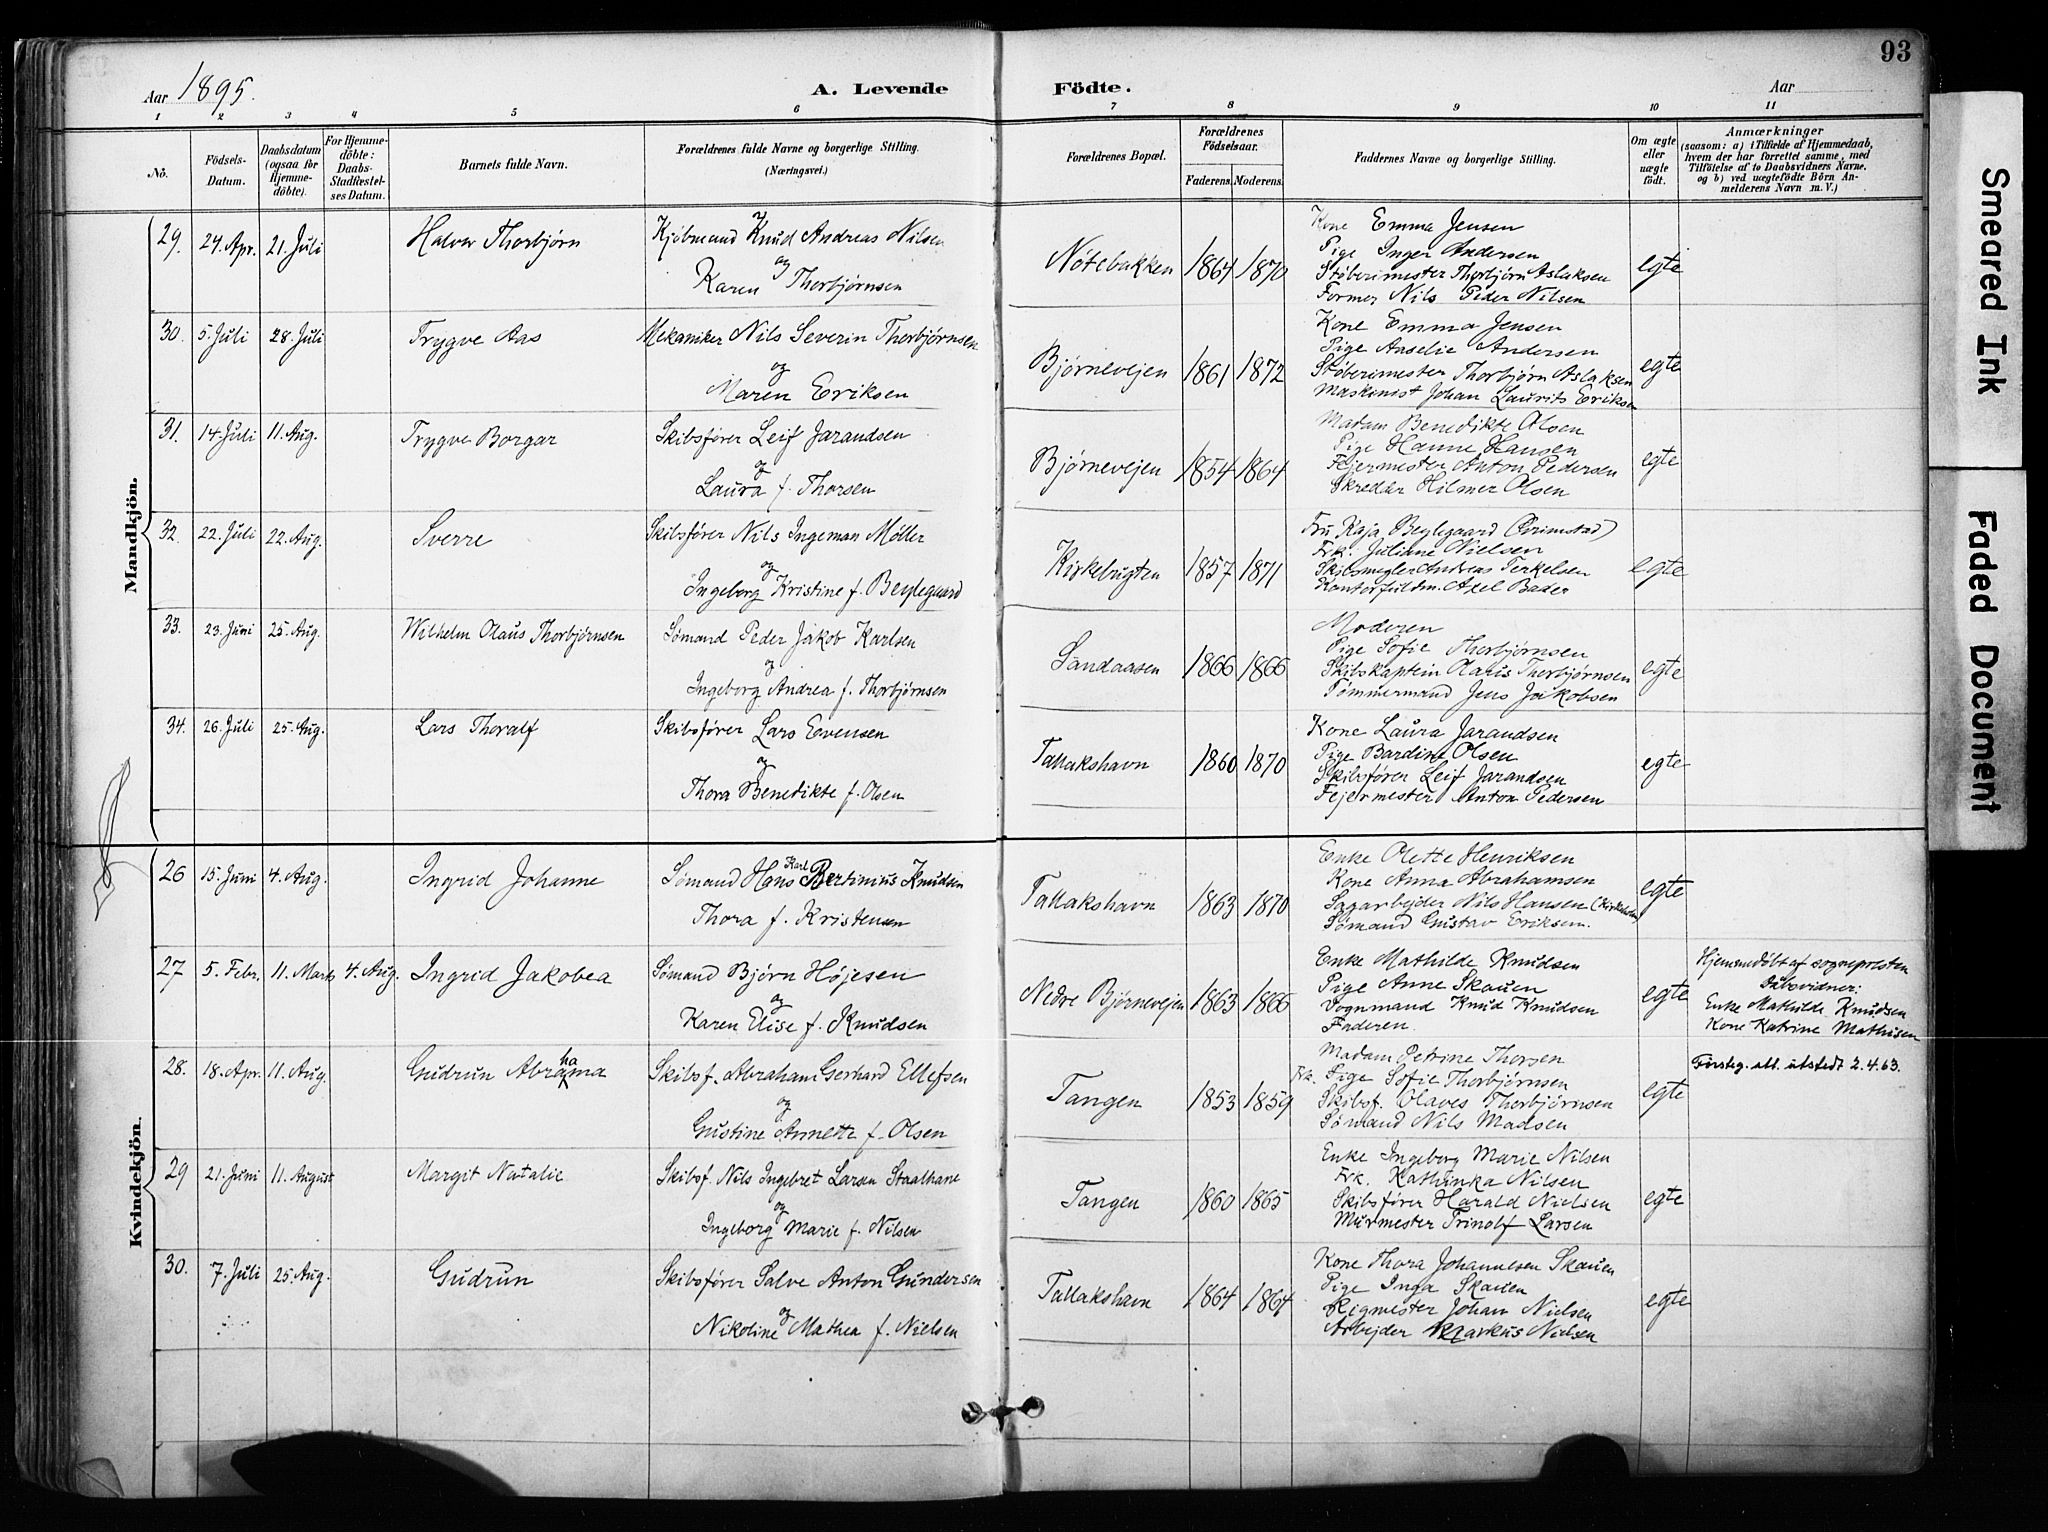 93
Aar 1895.
A. Levende Födte.
Aar
1 2 3 4 5 6 7 8 9 10 11
No.
Födsels-
Datum.
Daabsdatum
(ogsaa for
Hjemme-
döbte).
For Hjemme-
döbte:
Daabs-
Stadfæstel-
ses Datum.
Barnets fulde Navn.
Forældrenes fulde Navne og borgerlige Stilling.
(Næringsvei.)
Forældrenes Bopæl.
Forældrenes
Födselsaar.
Faderens. Moderens.
Faddernes Navne og borgerlige Stilling.
Om ægte
eller
uægte
födt.
Anmærkninger
(saasom: a) i Tilfælde af Hjemmedaab,
hvem der har forrettet samme, med
Tilföielse af to Daabsvidners Navne.
og b) ved uægtefödte Börn An-
melderens Navn m. V.)
Mandkjön.
29. 24. Apr. 21. Juli Halvor Thorbjørn
Kjøbmand Knud Andreas Nilsen
og
Karen Thorbjørnsen
Nøtebakken 1864 1870
Kone Emma Jensen
Pige Inger Andersen
Støberimester Thorbjørn Aslaksen
Former Nils Peder Nilsen
egte
30. 5. Juli 28. Juli Trygve Aas
Mekaniker Nils Severin Thorbjørnsen
og
Maren Eriksen
Bjørnevejen 1861 1872
Kone Emma Jensen
Pige Anselie Andersen
Støberimester Thorbjørn Aslaksen
Maskinist Johan Laurits Eriksen
egte
31. 14. Juli 11. Aug. Trygve Borgar
Skibsfører Leif Jarandsen
og
Laura f. Thorsen
Bjørnevejen 1854 1864
Madam Benedikte Olsen
Pige Hanne Hansen
Fejermester Anton Pedersen
Skredder Hilmer Olsen
egte
32. 22. Juli 22. Aug. Sverre
Skibsfører Nils Ingeman Møller
og
Ingeborg Kristine f. Beylegaard
Kirkebugten 1857 1871
Fru Kaja Beylegaard (Grimstad)
Frk. Juliane Nielsen
Skibsmegler Andreas Terkelsen
Kontorfuldm. Axel Bader
egte
33. 23. Juni 25. Aug. Wilhelm Olaus Thorbjørnsen
Sømand Peder Jakob Karlsen
og
Ingeborg Andrea f. Thorbjørnsen
Sandaasen 1866 1866
Moderen
Pige Sofie Thorbjørnsen
Skibskaptein Olaus Thorbjørnsen
Tømmermand Jens Jakobsen
egte
34. 26. Juli 25. Aug. Lars Thoralf
Skibsfører Lars Evensen
og
Thora Benedikte f. Olsen
Tallakshavn 1860 1870
Kone Laura Jarandsen
Pige Bardine Olsen
Skibsfører Leif Jarandsen
Fejermester Anton Pedersen
egte
Kvindekjön.
26 15. Juni 4. Aug. Ingrid Johanne
Sømand Hans Karl Bertinius Knudsen
Thora f. Kristensen
Tallakshavn 1863 1870
Enke Olette Henriksen
Kone Anna Abrahamsen
Sagarbejder Nils Hansen (Kirkeholm)
Sømand Gustav Eriksen.
egte
27 5. Febr. 11. Marts 4. Aug. Ingrid Jakobea
Sømand Bjørn Højesen
og
Karen Elise f. Knudsen
Nedre Bjørnevejen 1863 1866
Enke Mathilde Knudsen
Pige Anne Skauen
Vognmand Knud Knudsen
Faderen.
egte
Hjemmedøbt af sognepresten
Daabsvidner:
Enke Mathilde Knudsen
Kone Katrine Mathisen
28. 18. Apr. 11. Aug. Gudrun Abrahama
Skibsf. Abraham Gerhard Ellefsen
og
Gustine Annette f. Olsen
Tangen 1853 1859
Madam Petrine Thorsen
Frk. Pige Sofie Thorbjørnsen
Skibsf. Olaves Thorbjørnsen
Sømand Nils Madsen
egte
Førsteg. att. utstedt 2.4.63.
29 21. Juni 11. August Margit Natalie
Skibsf. Nils Ingebret Larsen Staalhane
og
Ingeborg Marie f. Nilsen
Tangen 1860 1865
Enke Ingeborg Marie Nilsen
Frk. Kathinka Nilsen
Skibsfører Harald Nielsen
Murmester Trinolf Larsen
egte
30. 7. Juli 25. Aug. Gudrun
Skibsfører Salve Anton Gundersen
og
Nikoline Mathea f. Nielsen
Tallakshavn 1864 1864
Kone Thora Johannesen Skauen
Pige Inga Skauen
Rigmester Johan Nielsen
Arbejder Markus Nielsen
egte
Smeared Ink
Faded Document